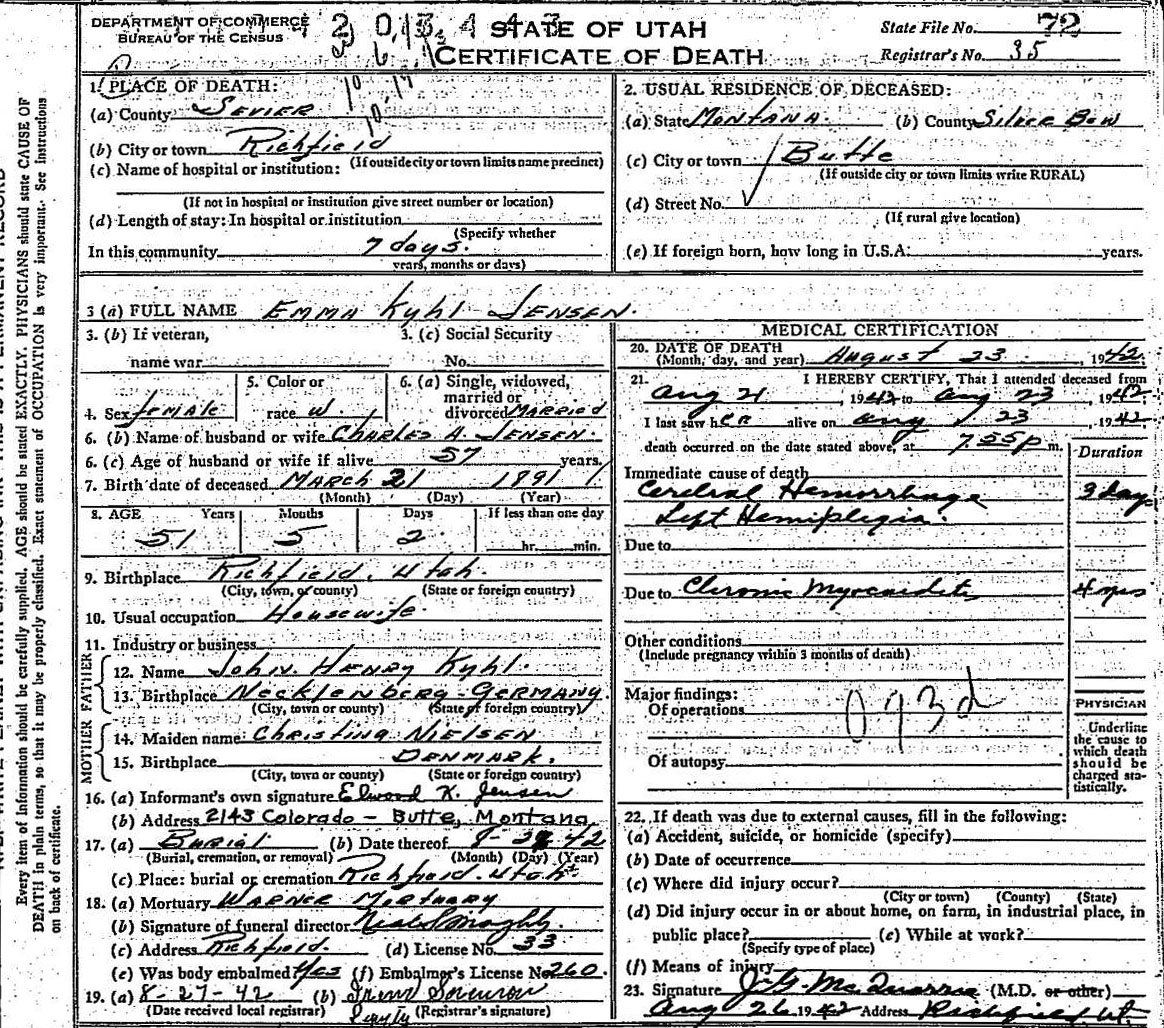 DEPARTMENT OF COMMERCE
BUREAU OF THE CENSUS
STATE OF UTAH
CERTIFICATE OF DEATH
State File No. 72
Registrar's No. 35
Every item of information should be carefully supplied. AGE should be stated EXACTLY. PHYSICIANS should state CAUSE OF
DEATH in plain terms, so that it may be properly classified. Exact statement of OCCUPATION is very important. See Instructions
on back of certificate.
1. PLACE OF DEATH:
(a) County SEVIER
(b) City or town Richfield
(If outside city or town limits name precinct)
(c) Name of hospital or institution:
(If not in hospital or institution give street number or location)
(d) Length of stay: In hospital or institution
(Specify whether
In this community 7 days.
years, months or days)
2. USUAL RESIDENCE OF DECEASED:
(a) State MONTANA (b) County Silver Bow
(c) City or town Butte
(If outside city or town limits write RURAL)
(d) Street No.
(If rural give location)
(e) If foreign born, how long in U.S.A. years.
3 (a) FULL NAME EMMA Kyhl JENSEN.
3. (b) If veteran,
name war
3. (c) Social Security
No.
4. Sex female
5. Color or
race W.
6. (a) Single, widowed,
married or
divorced MARRIED
6. (b) Name of husband or wife CHARLES A. JENSEN.
6. (c) Age of husband or wife if alive 57 years.
7. Birth date of deceased MARCH 21 1891
(Month) (Day) (Year)
8. AGE Years Months Days If less than one day
51 5 2 hr. min.
9. Birthplace Richfield, Utah.
(City, town, or county) (State or foreign country)
10. Usual occupation Housewife
11. Industry or business
FATHER
12. Name JOHN HENRY Kyhl.
13. Birthplace NECKLENBERG - GERMANY.
(City, town or county) (State or foreign country)
MOTHER
14. Maiden name: CHRISTINA NIELSEN
15. Birthplace DENMARK.
(City, town or county) (State or foreign country)
16. (a) Informant's own signature Elwood K. Jensen
(b) Address 2143 Colorado - Butte, Montana
17. (a) Burial (b) Date thereof 8- -42
(Burial, cremation, or removal) (Month) (Day) (Year)
(c) Place: burial or cremation Richfield. Utah
18. (a) Mortuary WARNER MORTUARY
(b) Signature of funeral director
(c) Address Richfield. (d) License No. 33
(e) Was body embalmed Yes (f) Embalmer's License No. 260.
19. (a) 8-27-42 (b) Irene Sorenson
(Date received local registrar) (Registrar's signature)
MEDICAL CERTIFICATION
20. DATE OF DEATH
(Month, day, and year) August 23, 1942.
21. I HEREBY CERTIFY, That I attended deceased from
Aug 21, 1942 to Aug 23, 1942.
I last saw her alive on Aug 23, 1942
death occurred on the date stated above, at 7.55p m.
Duration
Immediate cause of death
Cerebral Hemorrhage 3 days
Left Hemiplegia.
Due to
Due to Chronic Myocarditis 4 yrs
Other conditions
(Include pregnancy within 3 months of death)
Major findings:
Of operations
Of autopsy
PHYSICIAN
Underline
the cause to
which death
should be
charged sta-
tistically.
22. If death was due to external causes, fill in the following:
(a) Accident, suicide, or homicide (specify)
(b) Date of occurrence
(c) Where did injury occur?
(City or town) (County) (State)
(d) Did injury occur in or about home, on farm, in industrial place, in
public place? (e) While at work?
(Specify type of place)
(f) Means of injury
23. Signature J.G. McQuarrie (M.D. or other)
Aug 26 1942 Address Richfield Ut.